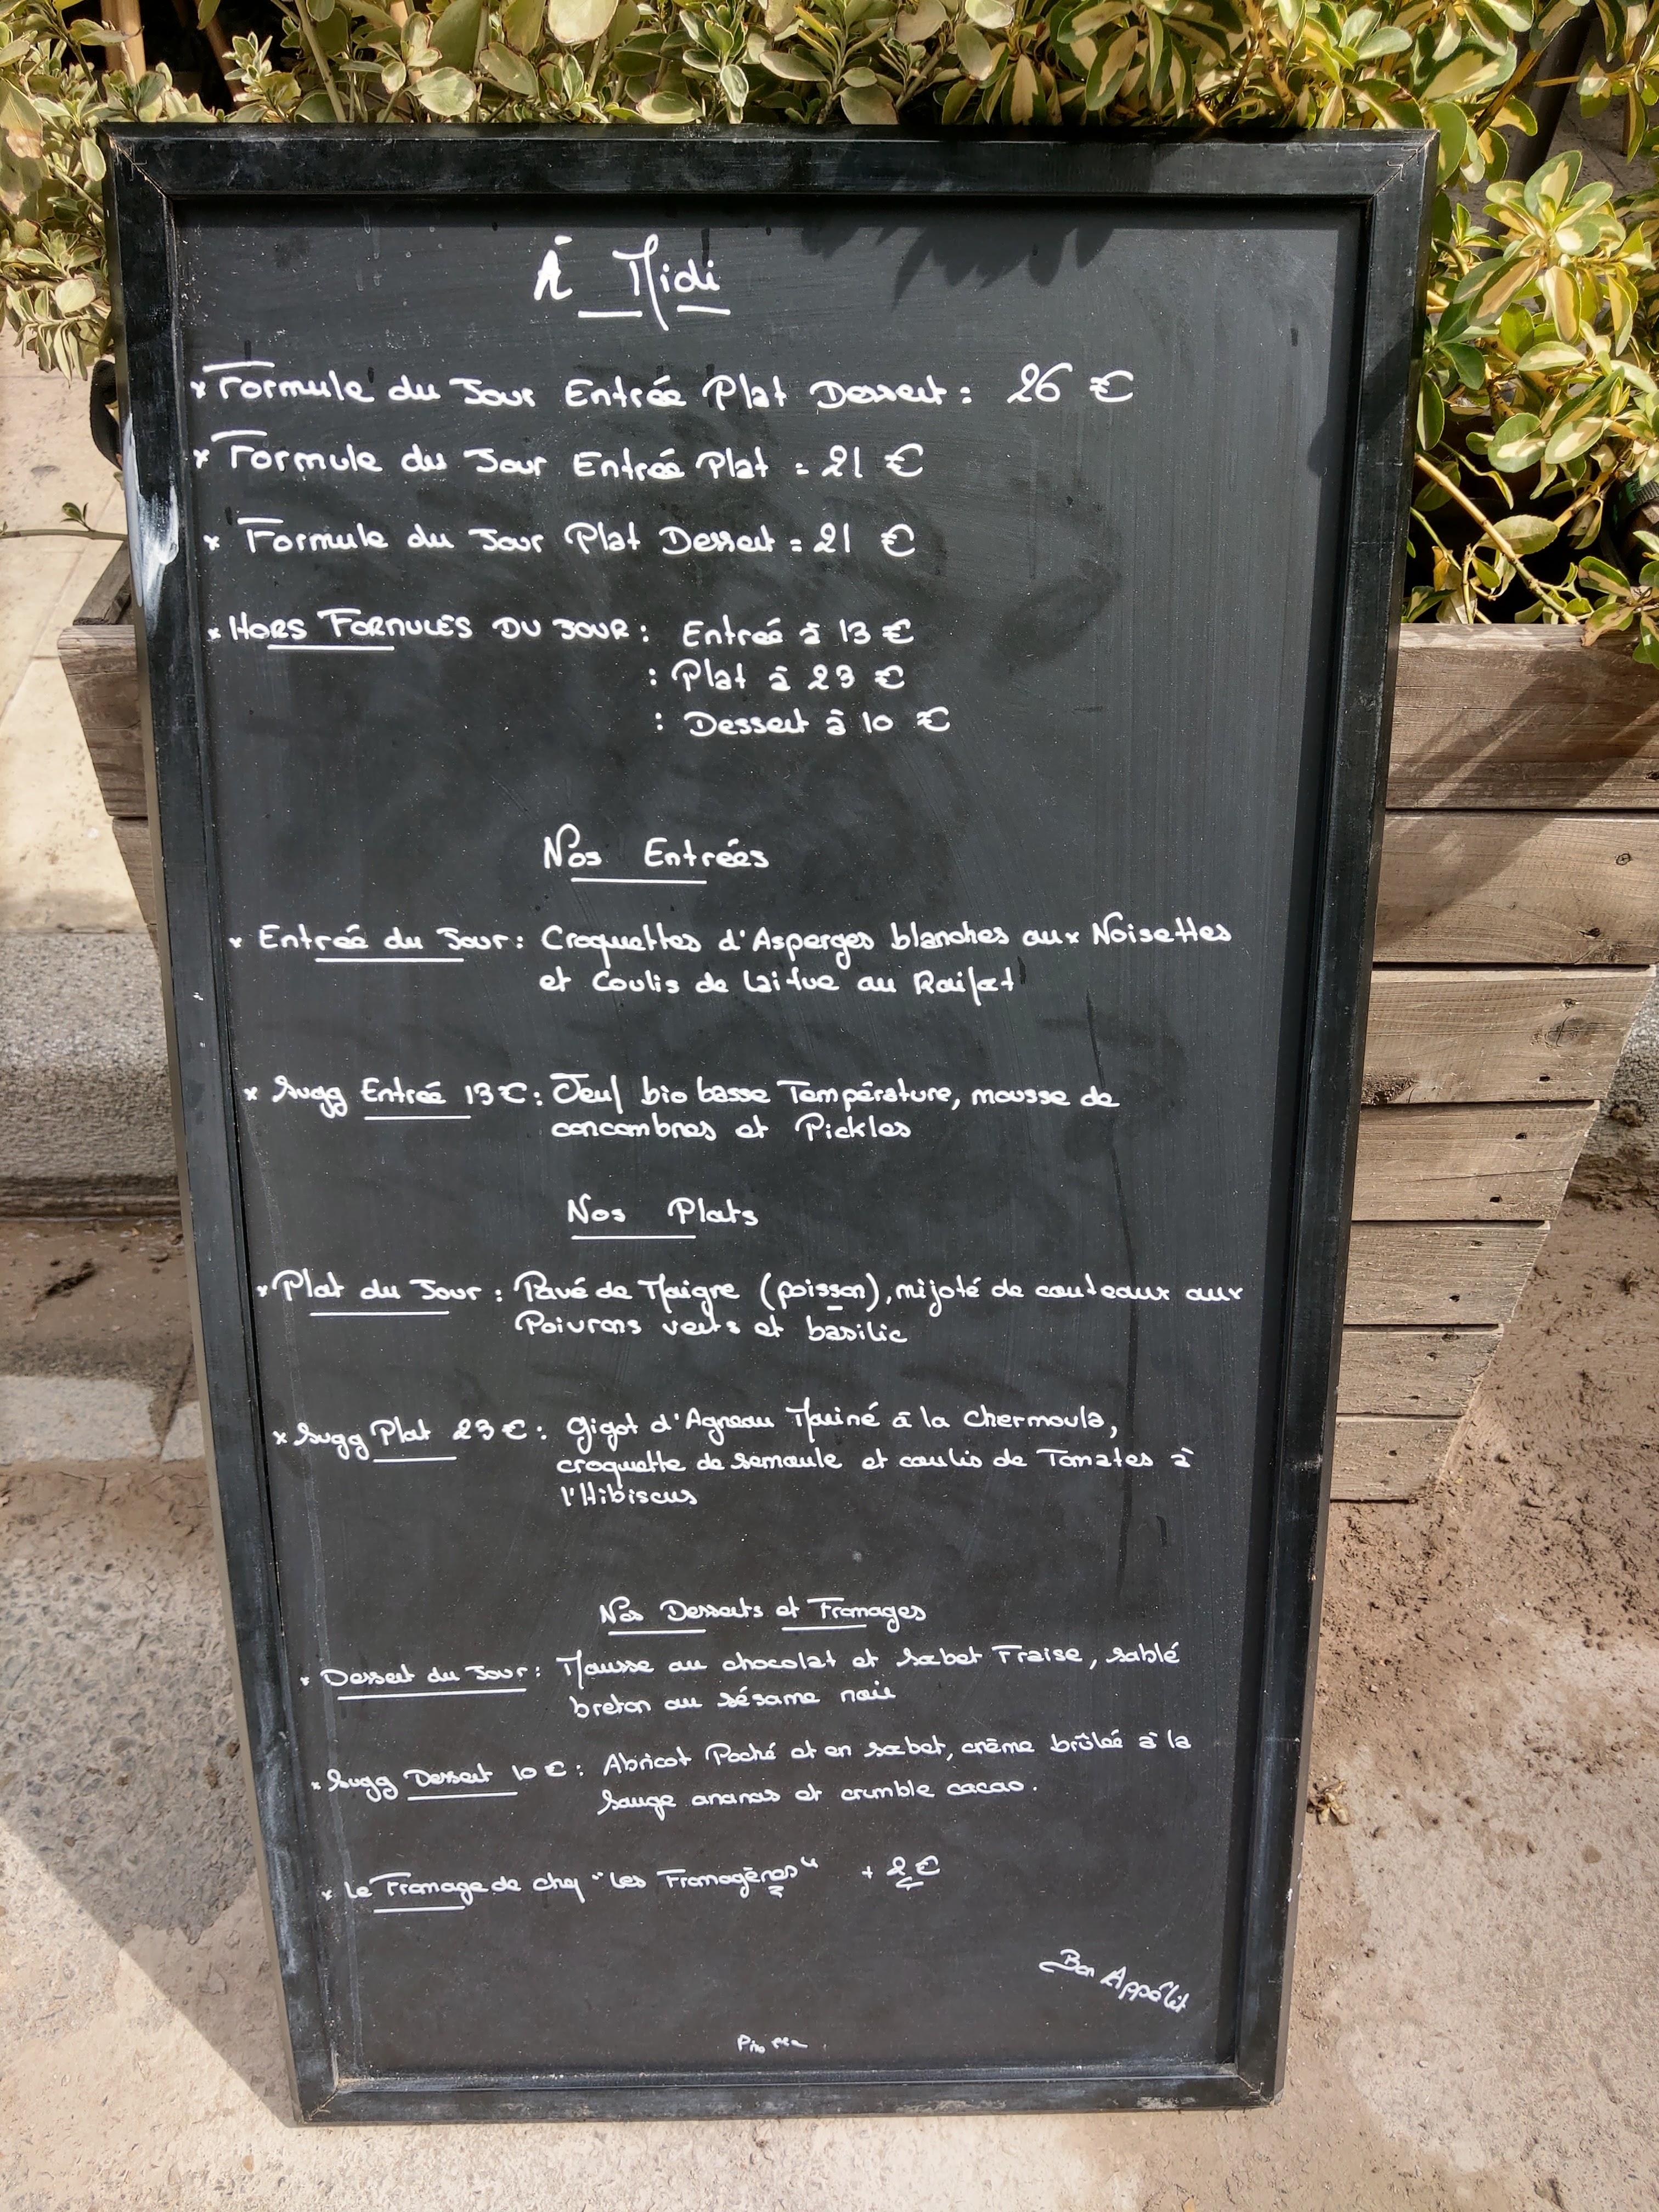 À Midi
* Formule du Jour Entrée Plat Dessert : 26 €
* Formule du Jour Entrée Plat = 21 €
* Formule du Jour Plat Dessert = 21 €
* HORS FORMULES DU JOUR : Entrée à 13 €
: Plat à 23 €
: Dessert à 10 €
Nos Entrées
* Entrée du Jour : Croquettes d'Asperges blanches aux Noisettes
et Coulis de laitue au Raifort
* Sugg Entrée 13 € : Oeuf bio basse Température, mousse de
concombres et Pickles
Nos Plats
* Plat du Jour : Pavé de Maigre (poisson), mijoté de couteaux aux
Poivrons verts et basilic
* Sugg Plat 23 € : Gigot d'Agneau Mariné à la Chermoula,
croquette de semoule et coulis de Tomates à
l'Hibiscus
Nos Desserts et Fromages
* Dessert du Jour : Mousse au chocolat et sorbet Fraise, sablé
breton au sésame noir
* Sugg Dessert 10 € : Abricot Poché et en sorbet, crème brûlée à la
Sauge ananas et crumble cacao.
* Le Fromage de chez "Les Fromagères" + 2 €
Bon Appétit